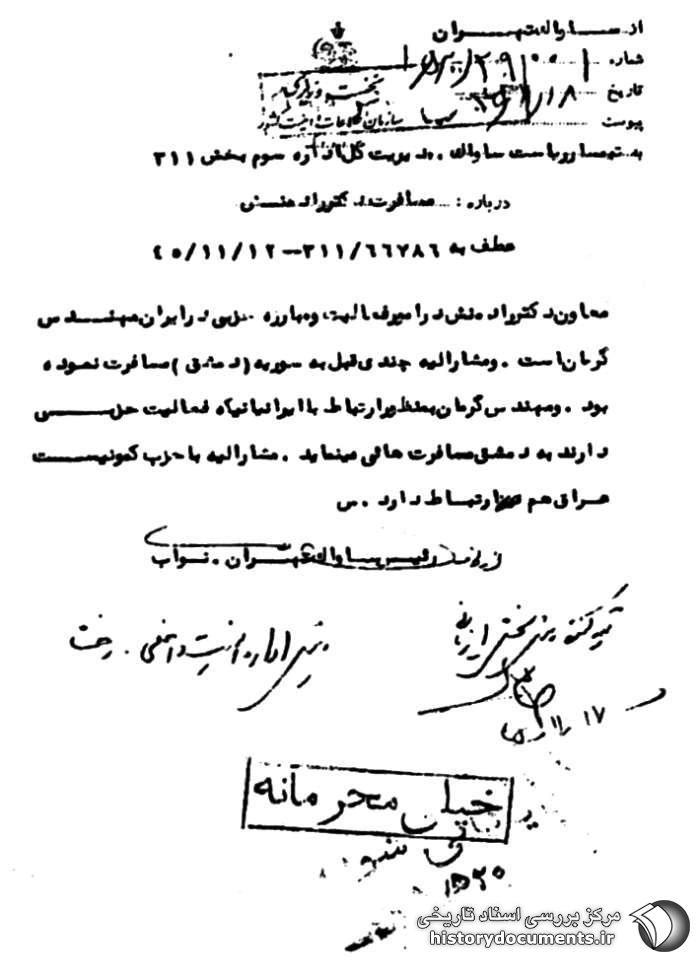 از ... ســاواک تهــران
شماره
تاریخ
پیوست
نخست وزیری
سازمان اطلاعات و امنیت کشور
به تیمسار ریاست ساواک . مدیریت کل اداره سوم بخش ۳۱۱
درباره : ... مسافرت دکتر رادمنش
عطف به ۳۱۱/۶۶۷۸۶–۴۵/۱۱/۱۲
معاون دکتر رادمنش در امور فعالیت و مبارزه حزبی در ایران مهنــدس
گرمان است . ومشارالیه چندی قبل به سوریه (دمشق) مسافرت نموده
بود . ومهندس گرمان بمنظور ارتباط با ایرانیانیکه فعالیت حزبــی
دارند به دمشق مسافرت هائی مینماید . مشارالیه با حزب کمونیســت
عــراق هم ارتبــاط دارد . س
رئیس ساواک تهــران . نــواب
تهیه کننده
۱۷
رئیس اداره امنیت داخلی .
خیلی محرمانه
مرکز بررسی اسناد تاریخی
historydocuments.ir